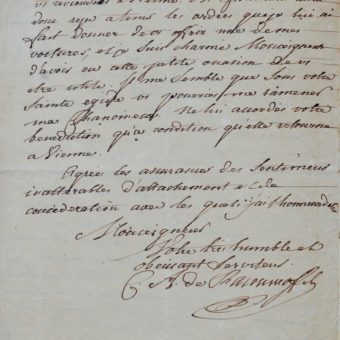 donc reçu a tems les ordres que je lui ai
fait donner de vs offrir une de mes
voitures, et je suis charmé Monseigneur
d'avoir eu cette petite ocasion de vs
être utile. Il me semble que sous votre
Sainte egide vs pourriez me ramener
ma Chanoinesse. Ne lui accordés votre
benediction qu'a condition qu'elle retourne
a Vienne.
Agrées les assurances des Sentimens
inaltérables d'attachement et de
consideration avec les quels j'ai l'honneur d'etre
Monseigneur
Votre très humble et
obeissant Serviteur
C. A. de Rasoumoffsky